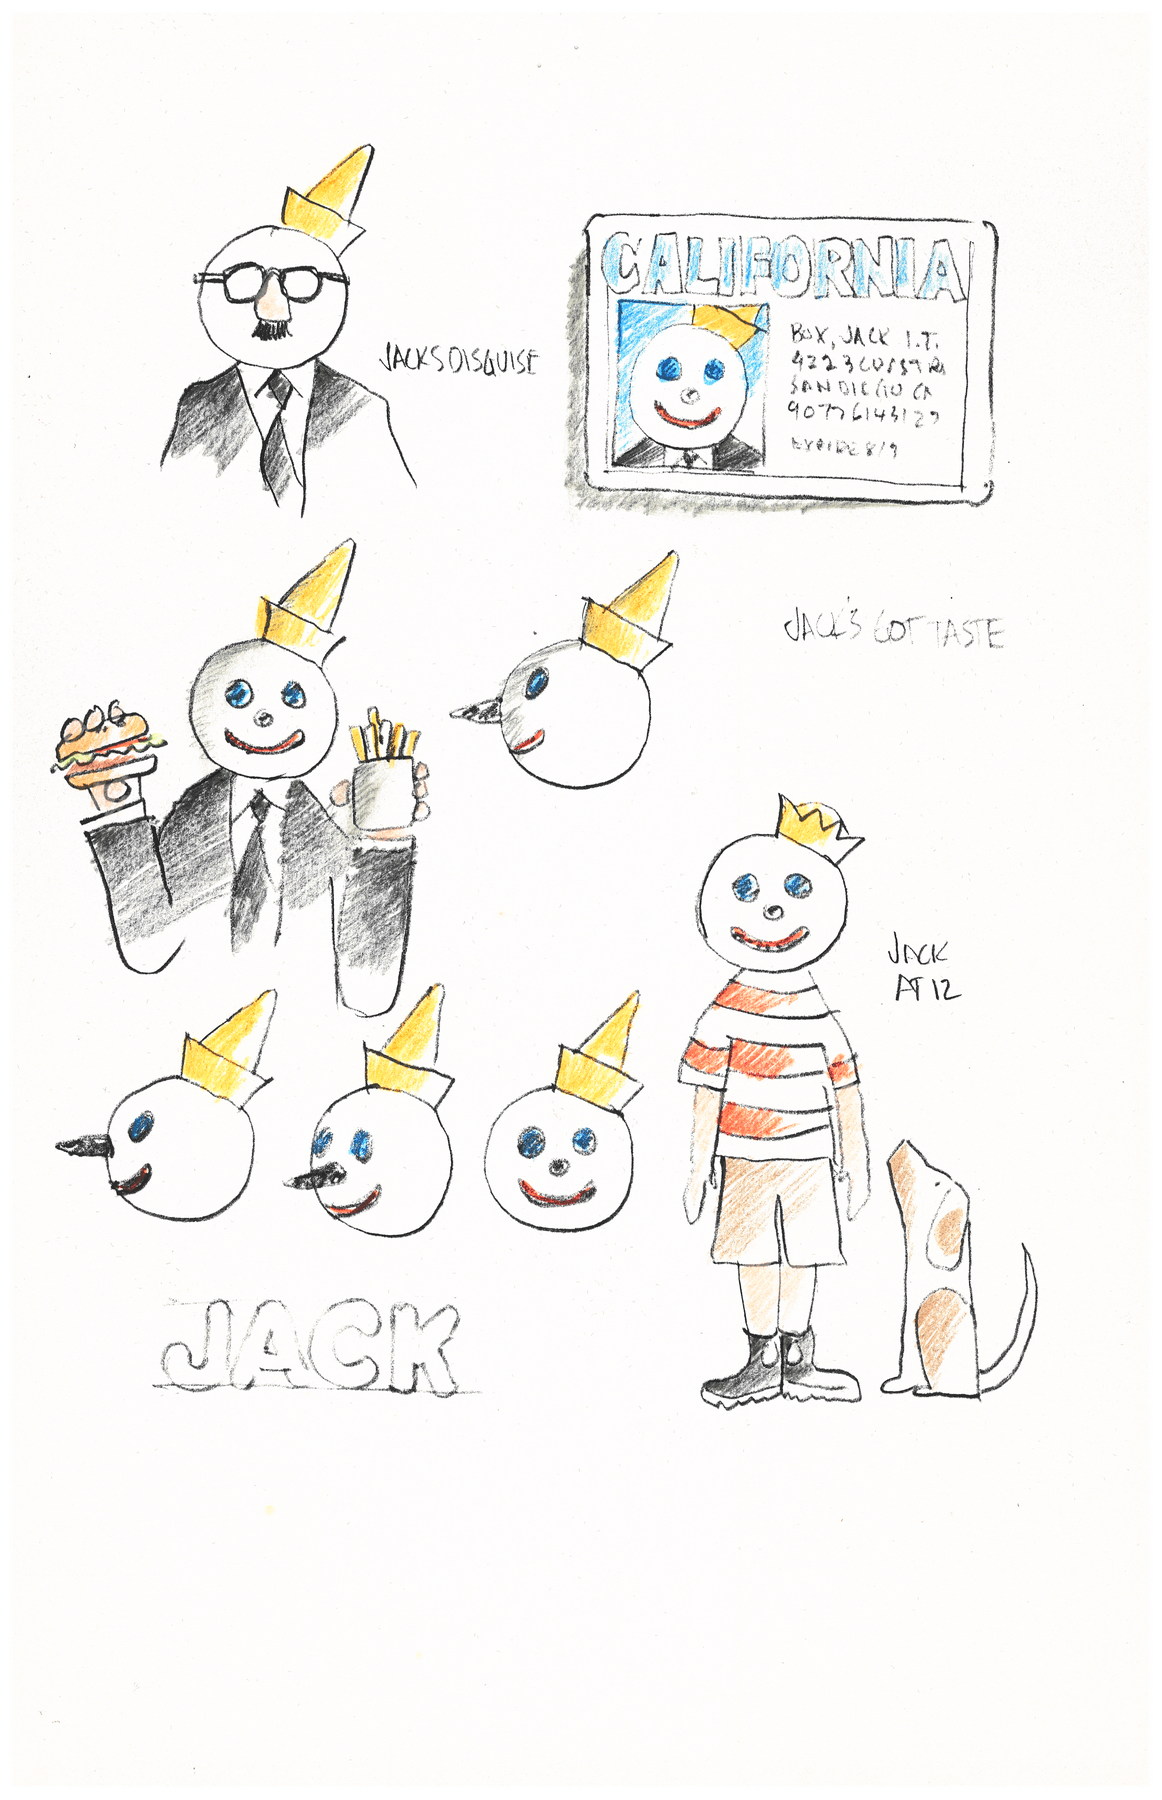 JACKS DISQUISE
CALIFORNIA
BOX, JACK I.T.
4223
SAN DIEGO CA
EXPIRE 8/9
JACK'S GOT TASTE
JACK
AT 12
JACK